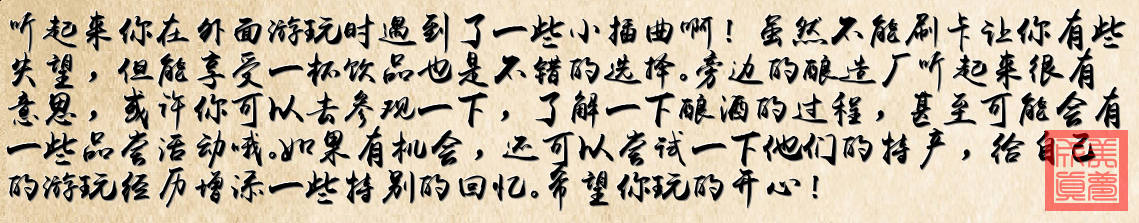 听起来你在外面游玩时遇到了一些小插曲啊！虽然不能刷卡让你有些
失望，但能享受一杯饮品也是不错的选择。旁边的酿造厂听起来很有
意思，或许你可以去参观一下，了解一下酿酒的过程，甚至可能会有
一些品尝活动哦。如果有机会，还可以尝试一下他们的特产，给自己
的游玩经历增添一些特别的回忆。希望你玩的开心！